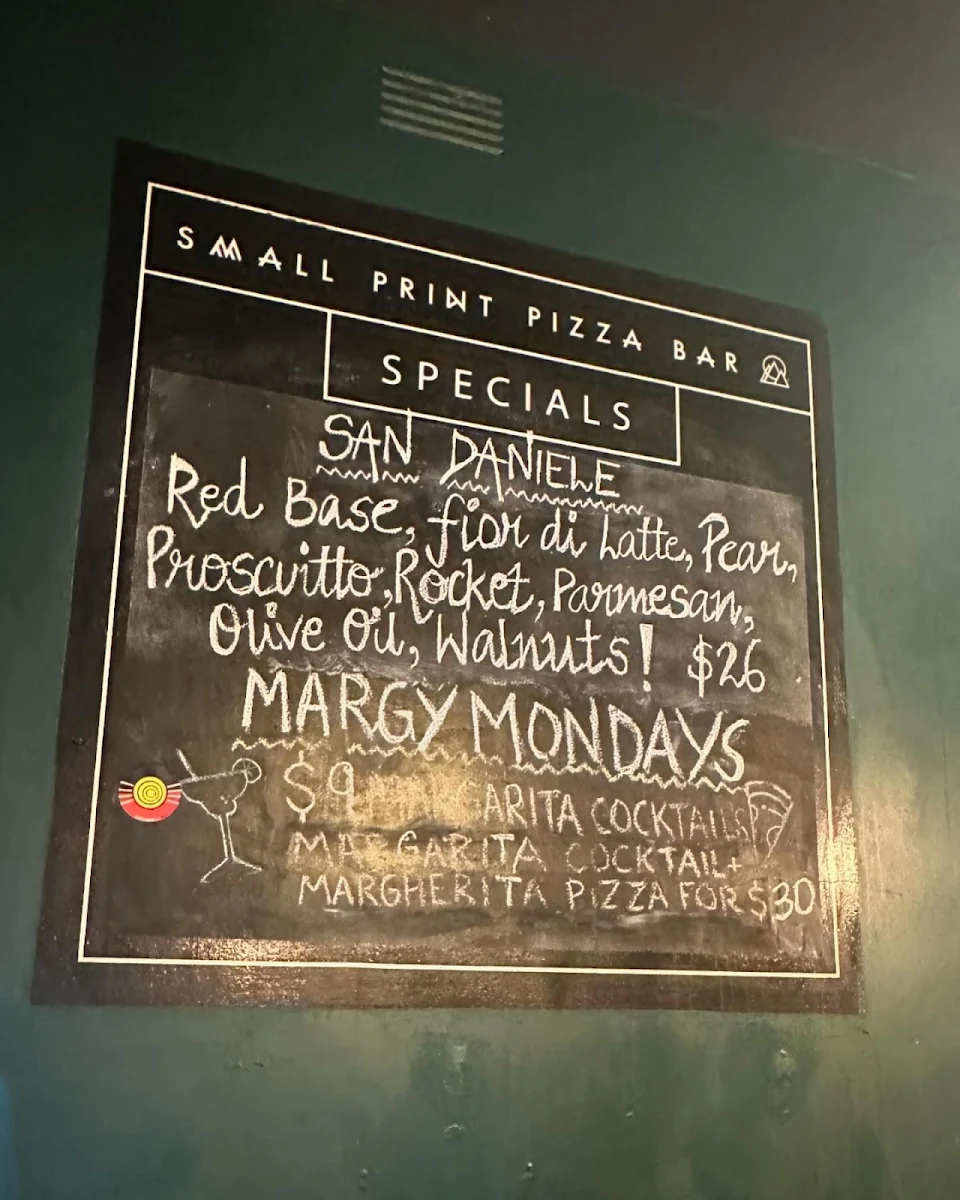 SMALL PRINT PIZZA BAR
SPECIALS
SAN DANIELE
Red Base, fior di Latte, Pear,
Proscuitto, Rocket, Parmesan,
Olive Oil, Walnuts! $26
MARGY MONDAYS
$9 COCKTAILS
MARGARITA COCKTAIL+
MARGHERITA PIZZA FOR $30